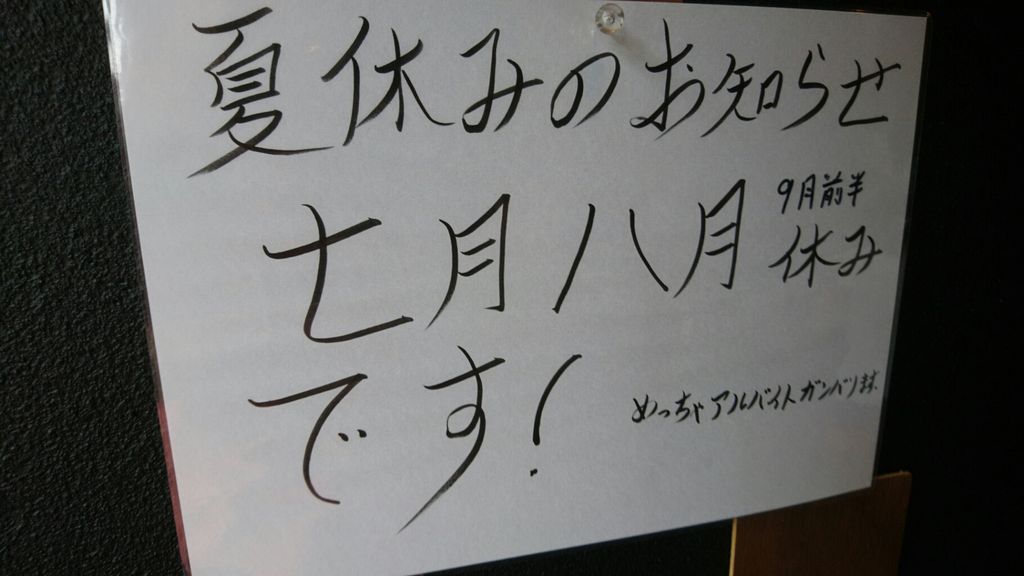 夏休みのお知らせ
七月八月
9月前半
休み
です!
めっちゃアルバイトガンバリます